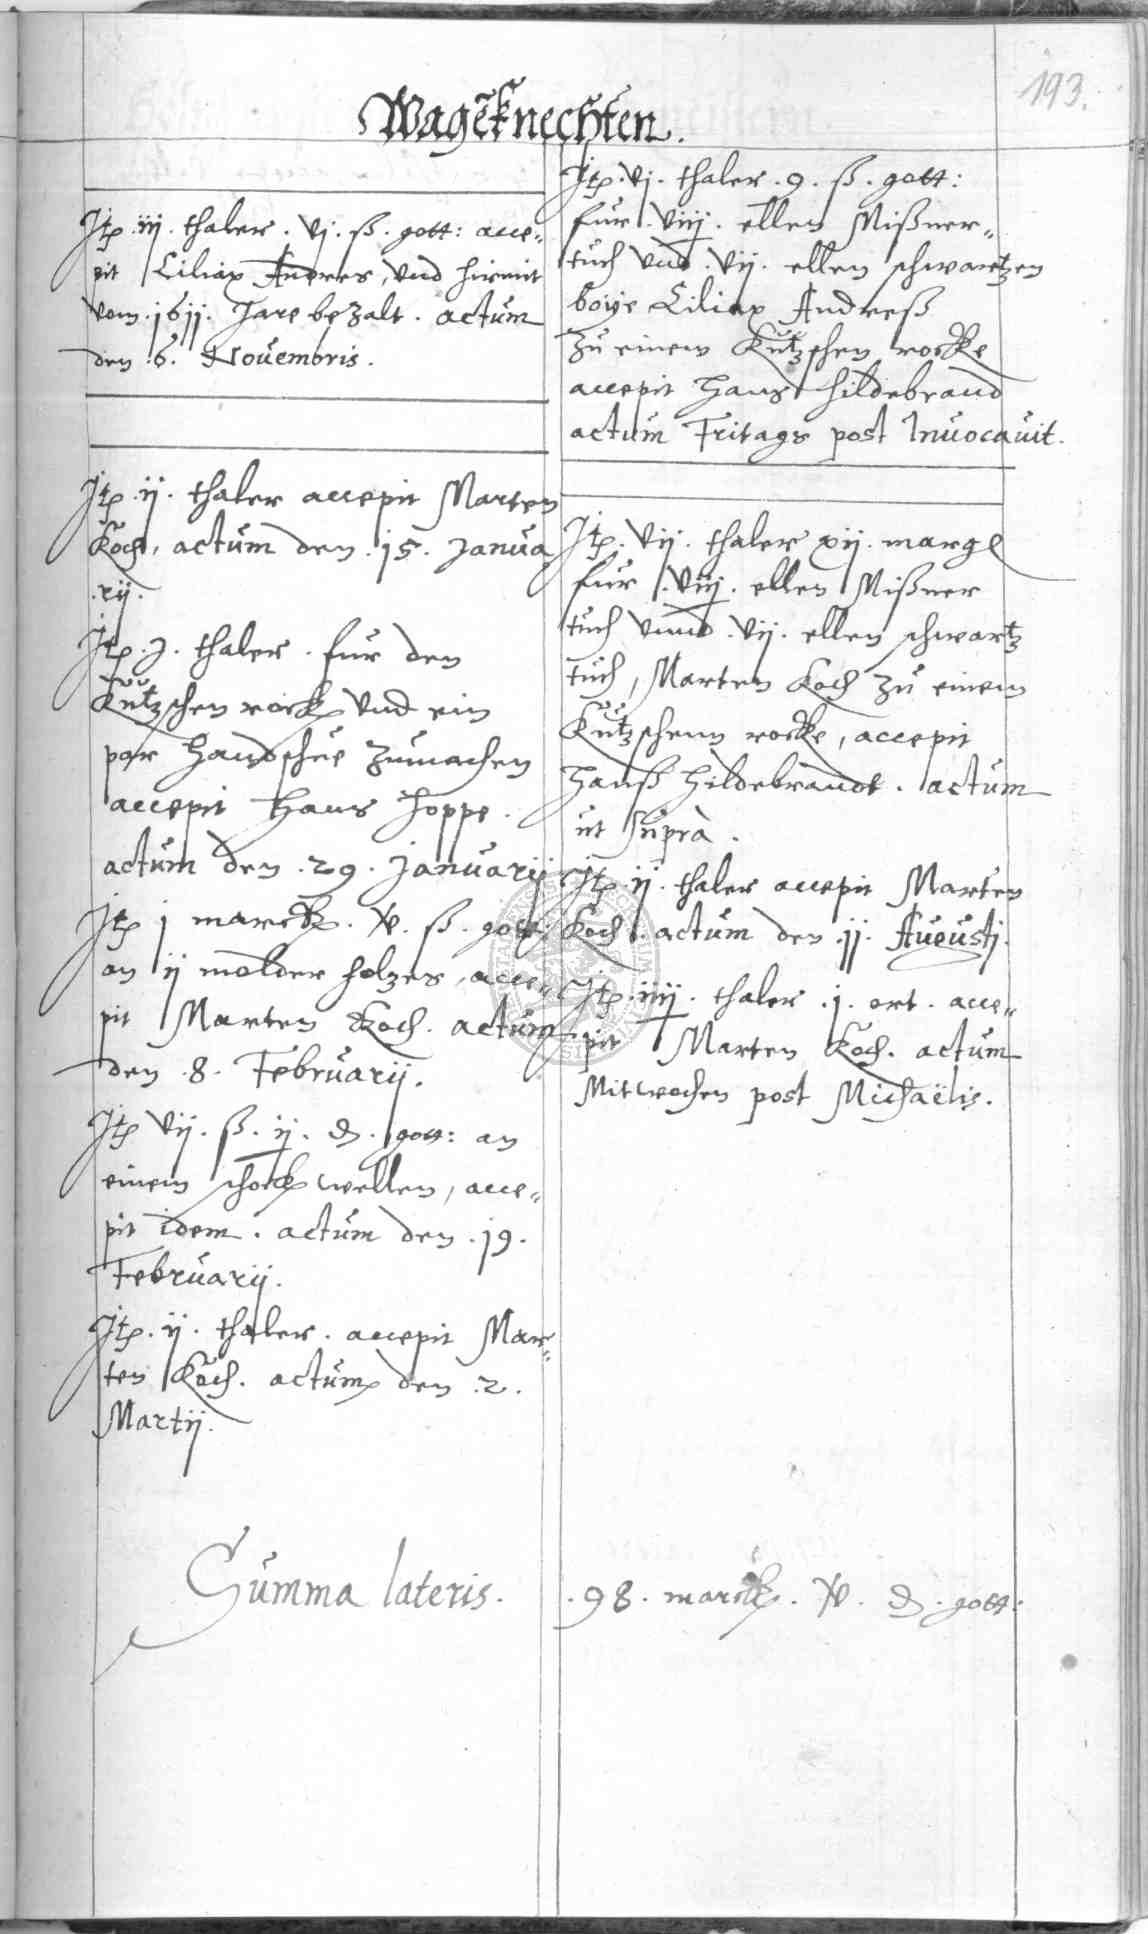 193.
Wagēknechten.
Jtp. iij. thaler. vj. ß. gott: acce„
pit Ciliax Andres, vnd hirmit
vom. 1611. Jare bezalt. actum
den .6. Nouembris.
Jtp. ij. thaler accepit Marten
Koch, actum den .15. Janua
rij.
Jtp. j. thaler. fur den
Kutzschen rock vnd ein
par Handschue zumachen
accepit Hans Hoppe.
actum den .29. Januarij
Jtp j marck. v. ß. gott:
an ij molder holzes, acce„
pit Marten Koch. actum
den .8. Februarij.
Jtp vij. ß. ij. d. gott: an
einem schock wellen, acce„
pit idem. actum den .19.
Februarij.
Jtp. ij. thaler. accepit Mar„
ten Koch. actum den .2.
Martij.
Jtp. vj. thaler .9. ß. gott:
fur. viij. ellen Mißner„
tuch vnd. vij. ellen schwartzen
boye Ciliax Andreß
zu einem Kutzschen rocke
accepit Hans Hildebrand
actum Fritags post Inuocauit.
Jtp. vij. thaler xij. margl
fur. viij. ellen Mißner
tuch vnnd. vij. ellen schwartz
tuch, Marten Koch zu einem
Kutzschenn rocke, accepit
Hanß Hildebrandt. actum
ut supra.
Jtp ij. thaler accepit Marten
Koch. actum den .11. Augustj.
Jtp. iiij. thaler .j. ort. acce„
pit Marten Koch. actum
Mitwochen post Michaëlis.
Summa lateris. .98. marck. v. d. gott: